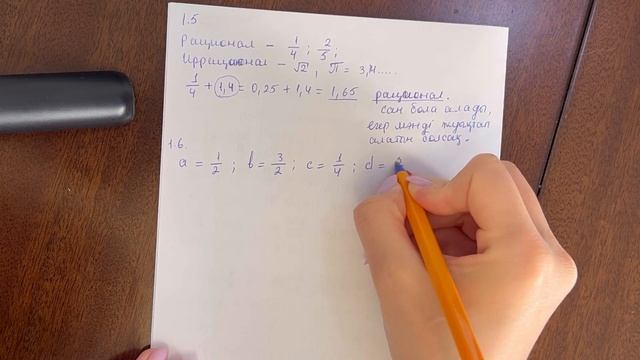 1.5
Рационал – 1/4 ; 2/5 ;
Иррационал – √2 , π = 3,14.....
1/4 + 1,4 = 0,25 + 1,4 = 1,65 рационал.
сан бола алады,
егер мәнді жуықтап
алатын болсақ.
1.6.
a = 1/2 ; b = 3/2 ; c = 1/4 ; d =